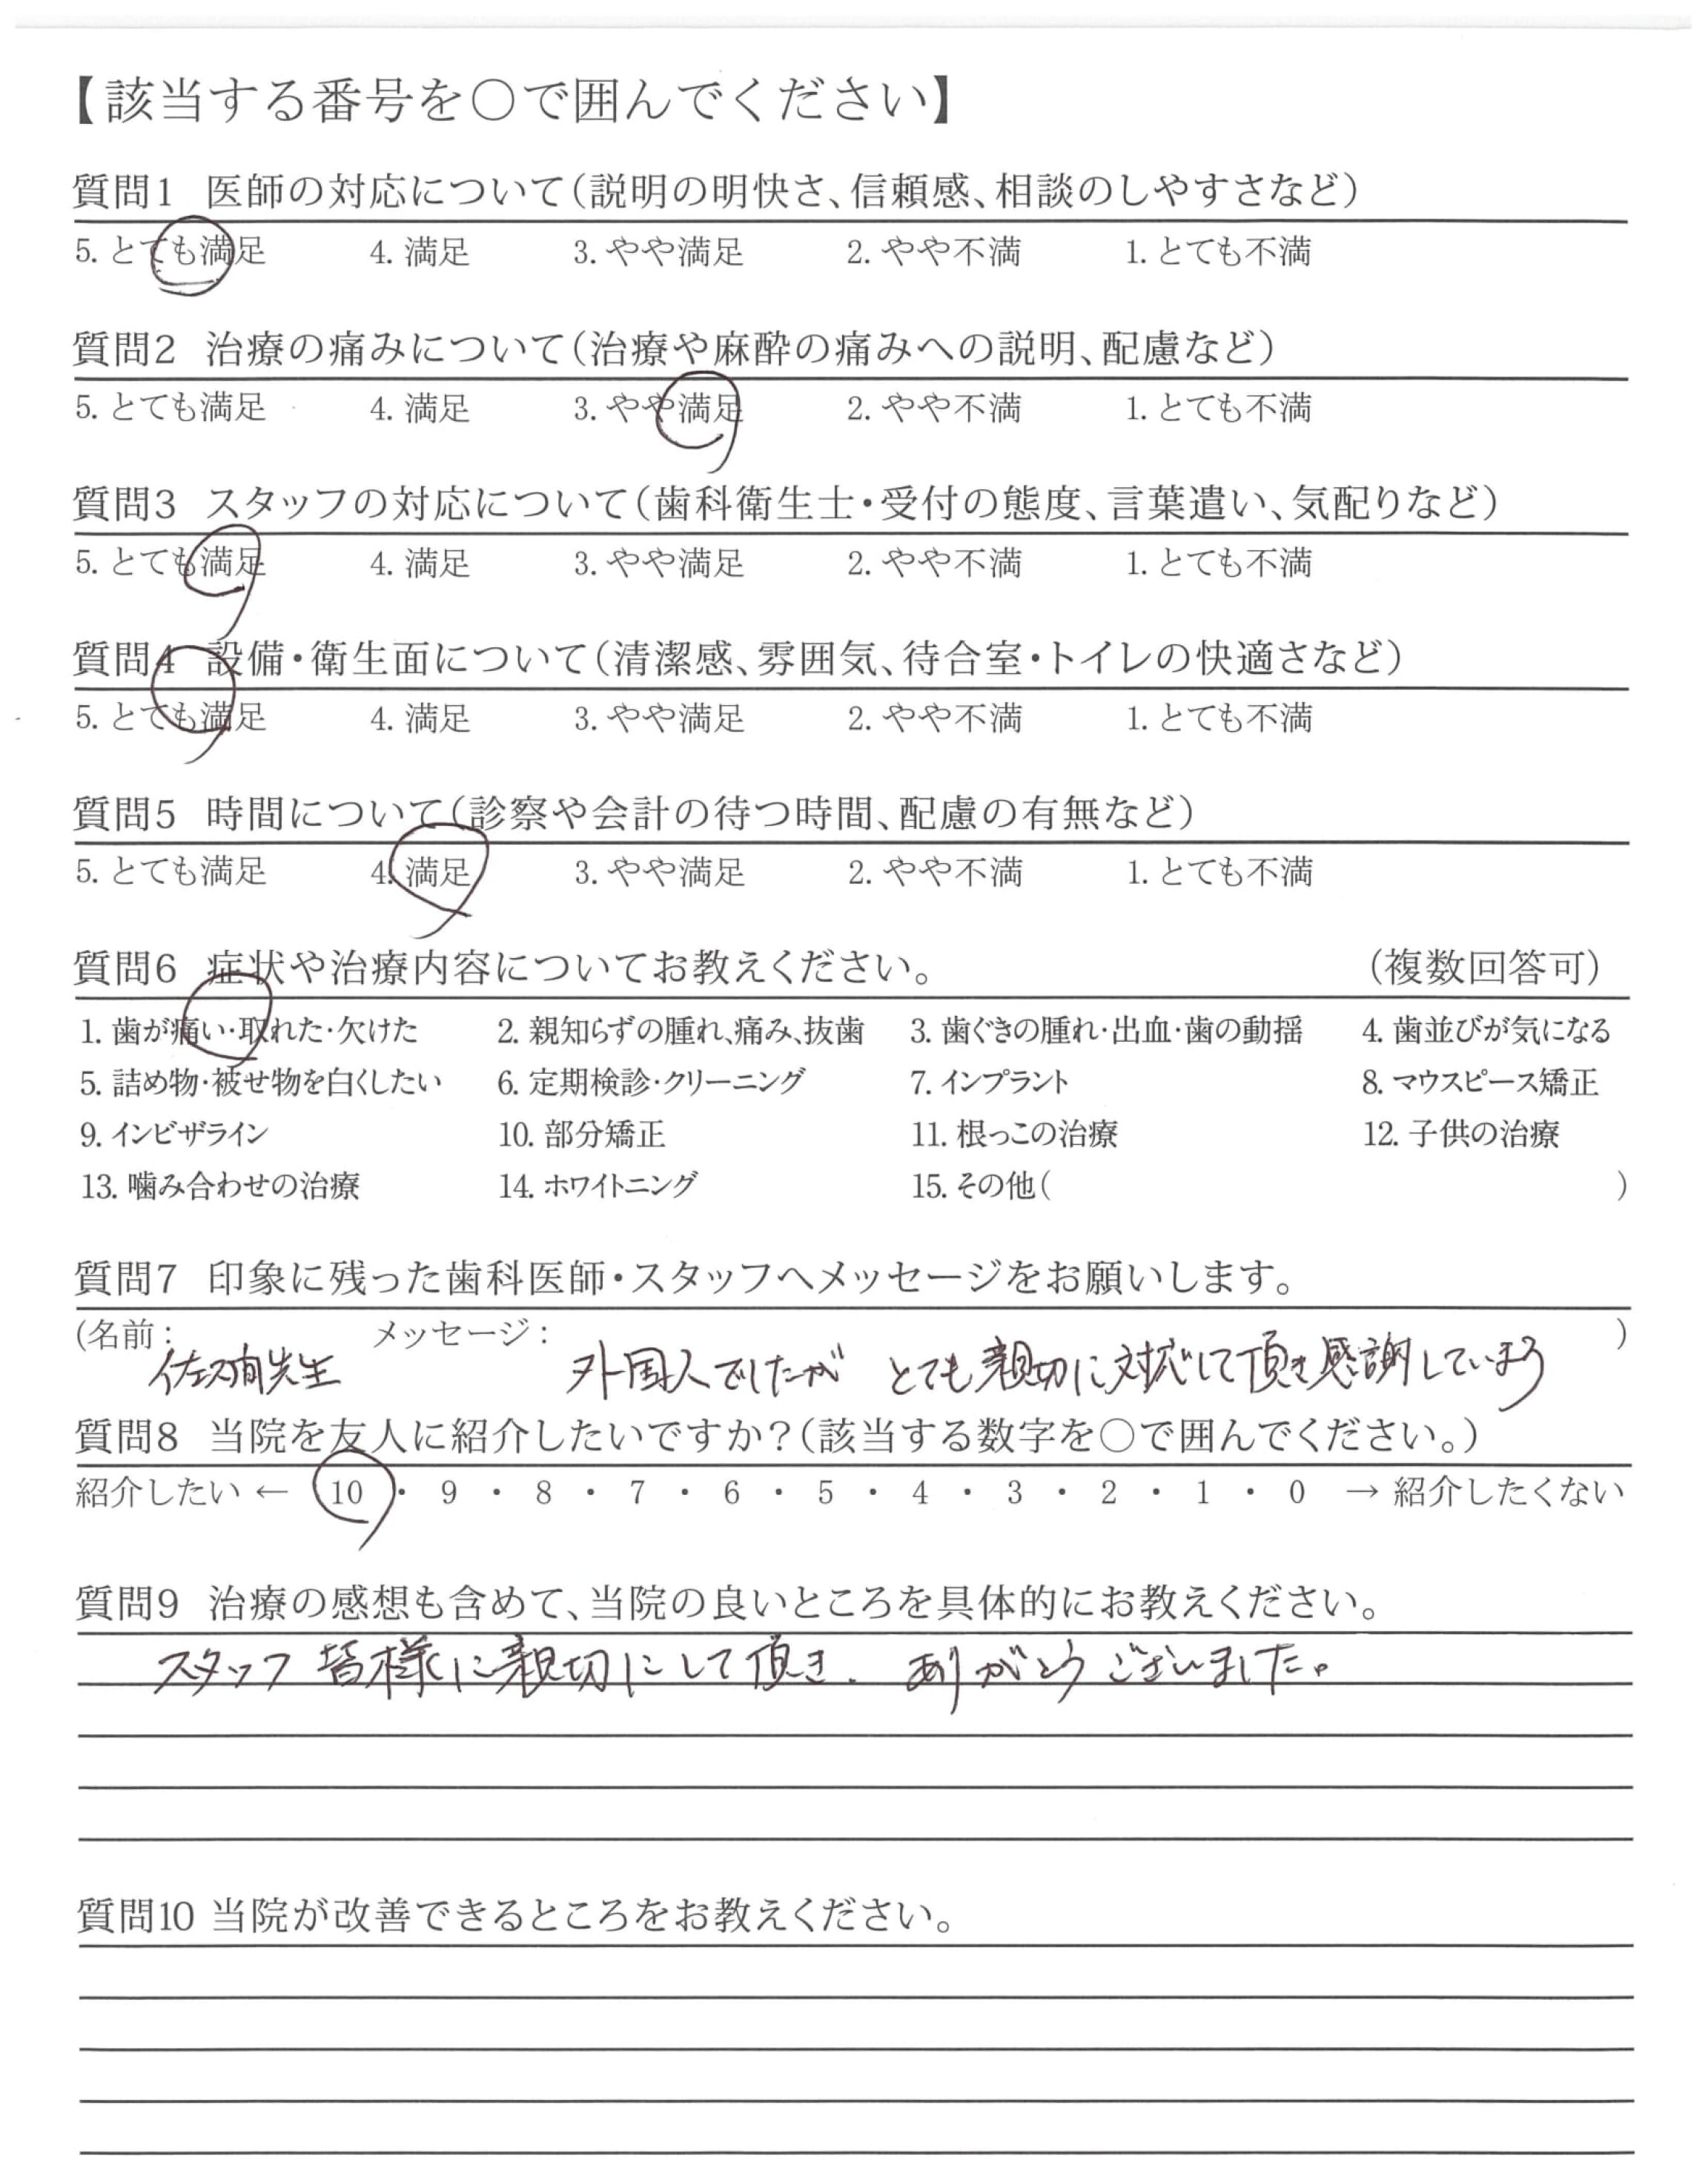 【該当する番号を○で囲んでください】
質問1 医師の対応について(説明の明快さ、信頼感、相談のしやすさなど)
5. とても満足 4. 満足 3. やや満足 2. やや不満 1. とても不満
質問2 治療の痛みについて(治療や麻酔の痛みへの説明、配慮など)
5. とても満足 4. 満足 3. やや満足 2. やや不満 1. とても不満
質問3 スタッフの対応について(歯科衛生士・受付の態度、言葉遣い、気配りなど)
5. とても満足 4. 満足 3. やや満足 2. やや不満 1. とても不満
質問4 設備・衛生面について(清潔感、雰囲気、待合室・トイレの快適さなど)
5. とても満足 4. 満足 3. やや満足 2. やや不満 1. とても不満
質問5 時間について(診察や会計の待つ時間、配慮の有無など)
5. とても満足 4. 満足 3. やや満足 2. やや不満 1. とても不満
質問6 症状や治療内容についてお教えください。 (複数回答可)
1. 歯が痛い・取れた・欠けた 2. 親知らずの腫れ、痛み、抜歯 3. 歯ぐきの腫れ・出血・歯の動揺 4. 歯並びが気になる
5. 詰め物・被せ物を白くしたい 6. 定期検診・クリーニング 7. インプラント 8. マウスピース矯正
9. インビザライン 10. 部分矯正 11. 根っこの治療 12. 子供の治療
13. 噛み合わせの治療 14. ホワイトニング 15. その他( )
質問7 印象に残った歯科医師・スタッフへメッセージをお願いします。
(名前: メッセージ: )
先生 外国人でしたが とても親切に対応して頂き感謝しています
質問8 当院を友人に紹介したいですか?(該当する数字を○で囲んでください。)
紹介したい ← 10 ・ 9 ・ 8 ・ 7 ・ 6 ・ 5 ・ 4 ・ 3 ・ 2 ・ 1 ・ 0 → 紹介したくない
質問9 治療の感想も含めて、当院の良いところを具体的にお教えください。
スタッフ 皆様に親切にして頂き、ありがとうございました。
質問10 当院が改善できるところをお教えください。